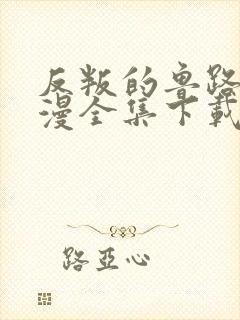 反叛的鲁路
漫全集下载
路亚心